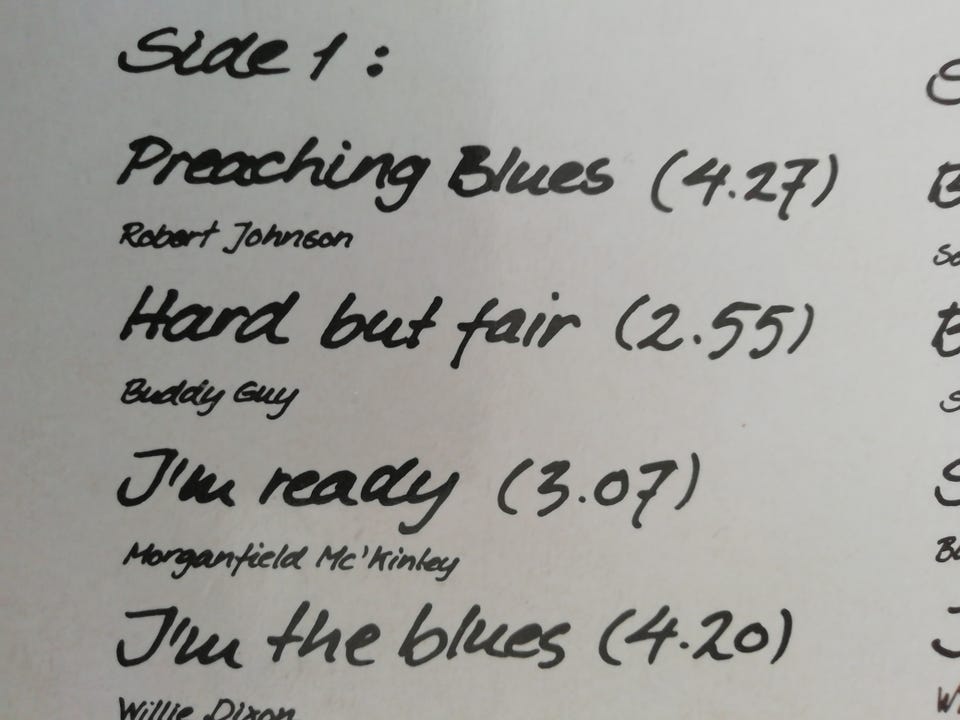 Side 1 :
Preaching Blues (4.27)
Robert Johnson
Hard but fair (2.55)
Buddy Guy
I'm ready (3.07)
Morganfield Mc'Kinley
I'm the blues (4.20)
Willie Dixon